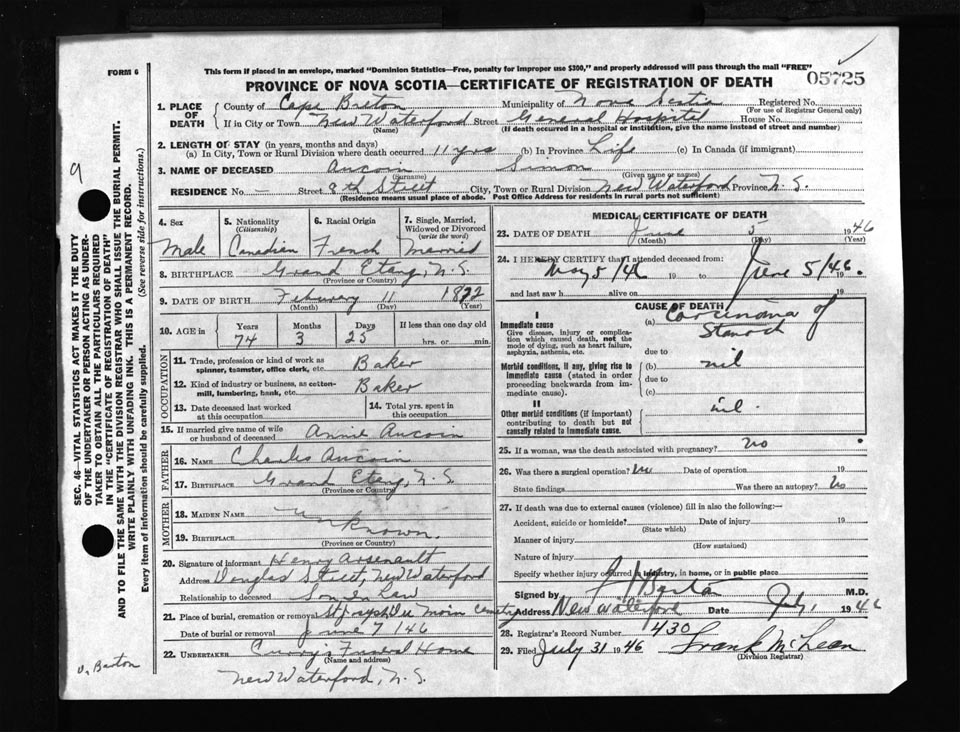 This form if placed in an envelope, marked "Dominion Statistics—Free, penalty for improper use $300," and properly addressed will pass through the mail "FREE"
FORM 6
05725
PROVINCE OF NOVA SCOTIA—CERTIFICATE OF REGISTRATION OF DEATH
1. PLACE OF DEATH { County of Cape Breton Municipality of Nova Scotia Registered No.
(For use of Registrar General only)
If in City or Town New Waterford Street General Hospital House No.
(Name) (If death occurred in a hospital or institution, give the name instead of street and number)
2. LENGTH OF STAY (in years, months and days)
(a) In City, Town or Rural Division where death occurred 11 yrs (b) In Province Life (c) In Canada (if immigrant)
3. NAME OF DECEASED Aucoin Simon
(Surname) (Given name or names)
RESIDENCE No. — Street 8th Street City, Town or Rural Division New Waterford Province N.S.
(Residence means usual place of abode. Post Office Address for residents in rural parts not sufficient)
4. Sex
Male
5. Nationality
(Citizenship)
Canadian
6. Racial Origin
French
7. Single, Married, Widowed or Divorced
(write the word)
Married
8. BIRTHPLACE Grand Etang, N.S.
(Province or Country)
9. DATE OF BIRTH February 11 1872
(Month) (Day) (Year)
10. AGE in { Years Months Days If less than one day old
74 3 25 hrs. or min.
OCCUPATION
11. Trade, profession or kind of work as spinner, teamster, office clerk, etc. Baker
12. Kind of industry or business, as cotton-mill, lumbering, bank, etc. Baker
13. Date deceased last worked at this occupation
14. Total yrs. spent in this occupation
15. If married give name of wife or husband of deceased Annie Aucoin
FATHER
16. NAME Charles Aucoin
17. BIRTHPLACE Grand Etang, N.S.
(Province or Country)
MOTHER
18. MAIDEN NAME unknown.
19. BIRTHPLACE
(Province or Country)
20. Signature of informant Henry Arsenault
Address Douglas Street, New Waterford
Relationship to deceased Son in Law
21. Place of burial, cremation or removal St Joseph du Moin Cemetry
Date of burial or removal June 7 /46
22. UNDERTAKER Curry's Funeral Home
(Name and address)
New Waterford, N.S.
MEDICAL CERTIFICATE OF DEATH
23. DATE OF DEATH June 5 1946
(Month) (Day) (Year)
24. I HEREBY CERTIFY that I attended deceased from:
May 5/46 19 to June 5/46. 19
and last saw h alive on 19
CAUSE OF DEATH
I
Immediate cause
Give disease, injury or complication which caused death, not the mode of dying, such as heart failure, asphyxia, asthenia, etc.
(a) Carcinoma of
Stomach
due to
Morbid conditions, if any, giving rise to immediate cause (stated in order proceeding backwards from immediate cause).
(b) nil
due to
(c)
II
Other morbid conditions (if important) contributing to death but not causally related to immediate cause.
nil.
25. If a woman, was the death associated with pregnancy? No
26. Was there a surgical operation? No Date of operation 19
State findings Was there an autopsy? No
27. If death was due to external causes (violence) fill in also the following:—
Accident, suicide or homicide? Date of injury 19
(State which)
Manner of injury
(How sustained)
Nature of injury
Specify whether injury occurred in industry, in home, or in public place
Signed by M.D.
Address New Waterford Date July 1 1946
28. Registrar's Record Number 430
29. Filed July 31 1946 Frank McLean
(Division Registrar)
SEC. 46—VITAL STATISTICS ACT MAKES IT THE DUTY
OF THE UNDERTAKER OR PERSON ACTING AS UNDERTAKER TO OBTAIN ALL THE PARTICULARS REQUIRED
IN THE "CERTIFICATE OF REGISTRATION OF DEATH"
AND TO FILE THE SAME WITH THE DIVISION REGISTRAR WHO SHALL ISSUE THE BURIAL PERMIT.
WRITE PLAINLY WITH UNFADING INK. THIS IS A PERMANENT RECORD.
Every item of information should be carefully supplied. (See reverse side for instructions.)
9